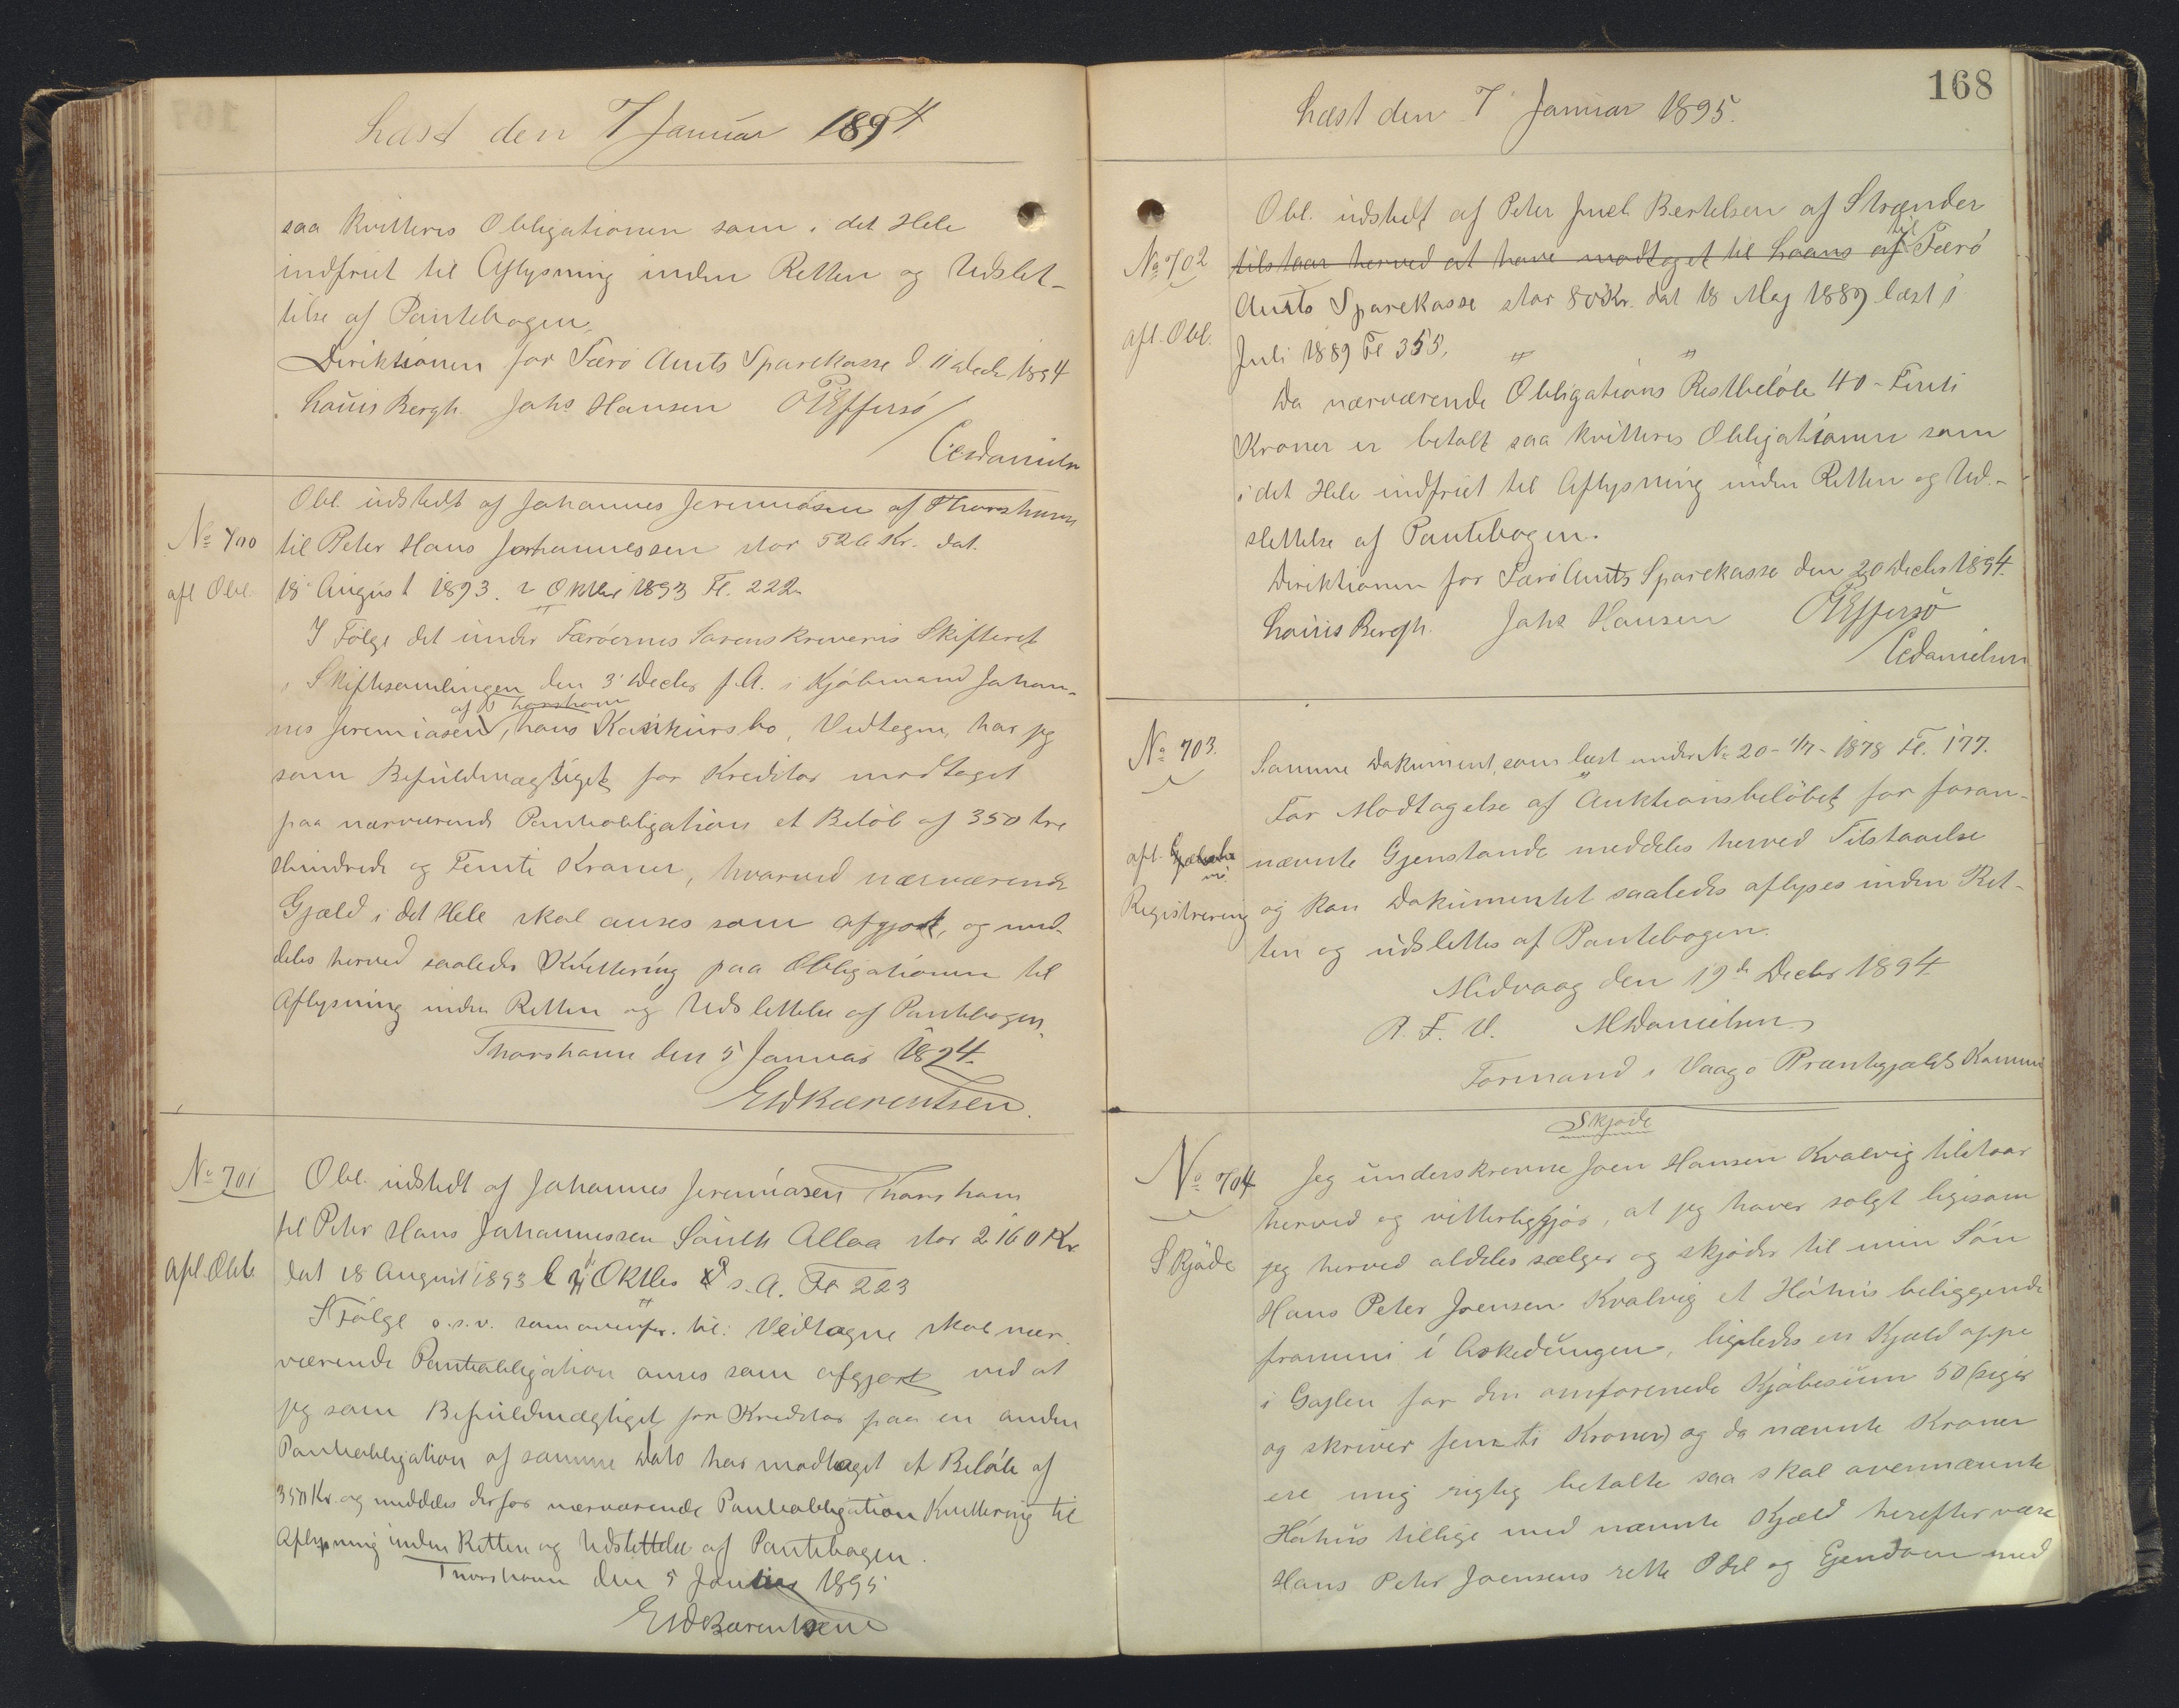 Læst den 7 Januar 1894
saa kvitteres Obligationen som i det Hele
indfriet til Aflysning inden Retten og Udslet-
telse af Pantebogen,
Direktionen for Færø Amts Sparekasse d 11 Decbr 1894
Louis Bergh. Johs Hansen OEffersø
/ CDanielsen
No 700
afl Obl.
Obl. udstedt af Johannes Jeremiasen af Thorshavn
til Peter Hans Johannessen stor 526 Kr. dat.
18 August 1893. 2 Oktbr 1893 Fl. 222
I Følge det under Færøernes Sorenskriveris Skifteret
i Skiftesamlingen den 3' Decbr f.A. i Kjøbmand Johan-
nes Jeremiasen af Thorshavn, hans Konkursbo, Vedtegne, har jeg
som Befuldmægtiget for Kreditor modtaget
paa nærværende Panteobligation et Beløb af 350 tre
Hundrede og Femti Kroner, hvorved nærværende
Gjæld i det Hele skal anses som afgjort, og med-
deles herved saaledes Kvittering paa Obligationen til
Aflysning inden Retten og Udslettelse af Pantebogen.
Thorshavn den 5 Januar 1894.
EWBærentsen.
No 701
afl. Obl.
Obl. udstedt af Johannes Jeremiasen Thorshavn
til Peter Hans Johannessen South Alloa stor 2160 Kr.
dat 18 August 1893 l 2 Oktbr s.A. Fo 223
I Følge o.s.v. som ovenfor. til: Vedtagne skal nær-
værende Panteobligation anses som afgjort ved at
jeg som Befuldmægtiget for Kreditor paa en anden
Panteobligation af samme Dato har modtaget et Beløb af
350 Kr. og meddeles derfor nærværende Panteobligation Kvittering til
Aflysning inden Retten og Udslettelse af Pantebogen.
Thorshavn den 5 Januar 1895
EWBærentsen
168
Læst den 7 Januar 1895.
No 702
afl. Obl.
Obl. udstedt af Peter Juel Bertelsen af Strænder
tilstaar herved at have modtaget til Laans af til Færø
Amts Sparekasse stor 80 Kr. dat 18 Maj 1889 læst 1
Juli 1889 Fl 355,
Da nærværende Obligations Restbeløb 40 - Firti
Kroner er betalt saa kvitteres Obligationen som
i det Hele indfriet til Aflysning inden Retten og Ud-
slettelse af Pantebogen.
Direktionen for Færø Amts Sparekasse den 20 Decbr 1894.
Louis Bergh. Johs Hansen OEffersø
/ CDanielsen
No 703.
afl.
Registrering
Samme Dokument, som læst under No 20 - 1/7 - 1878 Fl. 177.
For Modtagelse af Auktionsbeløbet for foran-
nævnte Gjenstande meddeles herved Tilstaaelse
og kan Dokumentet saaledes aflyses inden Ret-
ten og udslettes af Pantebogen.
Midvaag den 19de Decbr 1894
P. F. V. MDanielsen
Formand i Vaagø Præstegjælds Kommu
Skjøde
No 704
Skjøde
Jeg underskrevne Joen Hansen Kvalvig tilstaar
herved og vitterliggjør, at jeg haver solgt ligesom
jeg herved aldeles sælger og skjøder til min Søn
Hans Peter Joensen Kvalvig et Høhus beliggende
frammi i Askedungen, ligeledes en Kjæld oppe
i Gajlen for den omforenede Kjøbesum 50 (siger
og skriver femti Kroner) og da nævnte Kroner
ere mig rigtig betalte saa skal ovennævnte
Høhus tillige med nævnte Kjæld herefter være
Hans Peter Joensens rette Odel og Ejendom med